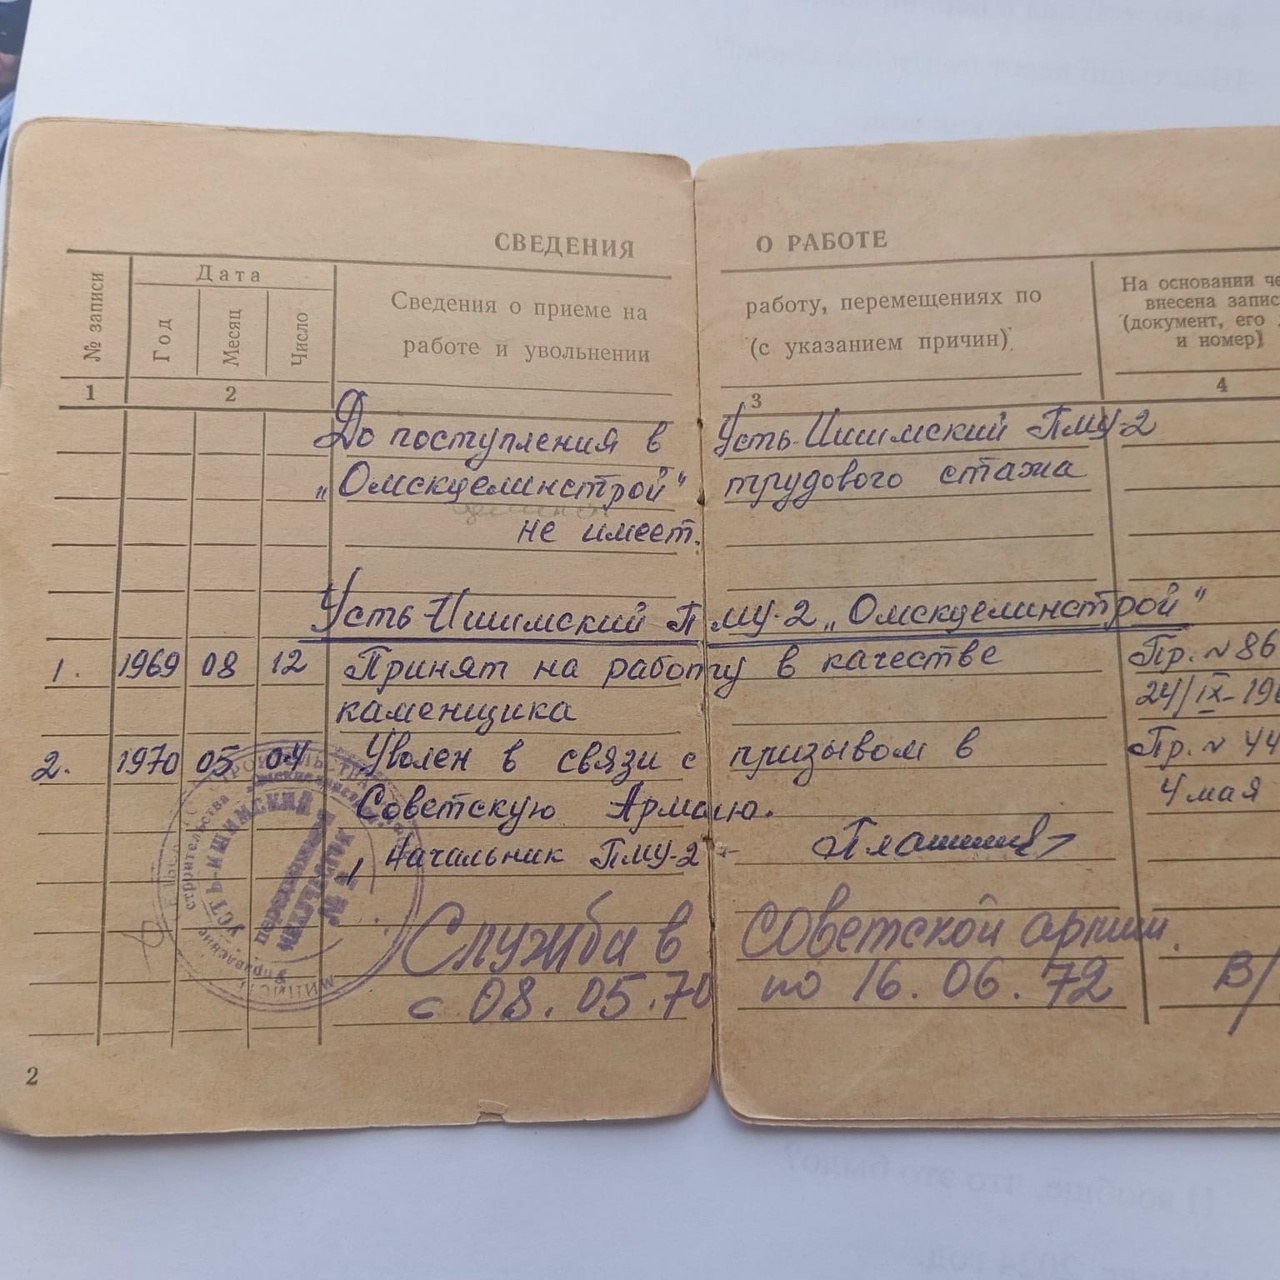 СВЕДЕНИЯ О РАБОТЕ
№ записи
Дата
Год
Месяц
Число
Сведения о приеме на работу, перемещениях по
работе и увольнении (с указанием причин)
На основании че
внесена запис
(документ, его
и номер)
1 2 3 4
До поступления в Усть-Ишимский ПМУ-2
„Омскцелинстрой" трудового стажа
не имеет.
Усть-Ишимский ПМУ-2 „Омскцелинстрой"
1. 1969 08 12 Принят на работу в качестве Пр. № 86
каменщика 24/IX-196
2. 1970 05 04 Уволен в связи с призывом в Пр. № 44
Советскую Армию. 4 мая
Начальник ПМУ-2
Служба в Советской армии.
с 08.05.70 по 16.06.72 В/
УСТЬ-ИШИМСКИЙ
строительства
Управление
2